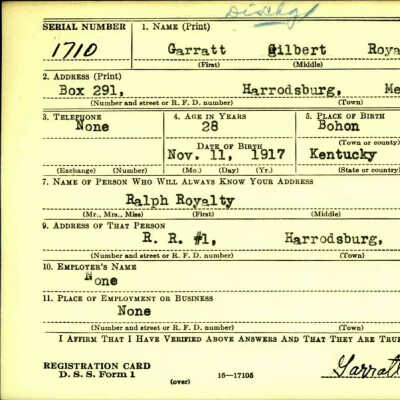 Dischg
SERIAL NUMBER 1. NAME (Print)
1710 Garratt Gilbert Roya
(First) (Middle)
2. ADDRESS (Print)
Box 291, Harrodsburg, Me
(Number and street or R. F. D. number) (Town)
3. TELEPHONE 4. AGE IN YEARS 5. PLACE OF BIRTH
None 28 Bohon
DATE OF BIRTH (Town or county)
Nov. 11, 1917 Kentucky
(Exchange) (Number) (Mo.) (Day) (Yr.) (State or country)
7. NAME OF PERSON WHO WILL ALWAYS KNOW YOUR ADDRESS
Ralph Royalty
(Mr., Mrs., Miss) (First) (Middle)
9. ADDRESS OF THAT PERSON
R. R. #1, Harrodsburg,
(Number and street or R. F. D. number) (Town)
10. EMPLOYER'S NAME
None
11. PLACE OF EMPLOYMENT OR BUSINESS
None
(Number and street or R. F. D. number) (Town)
I AFFIRM THAT I HAVE VERIFIED ABOVE ANSWERS AND THAT THEY ARE TRUE
REGISTRATION CARD
D. S. S. Form 1 16—17105 Garratt
(over)